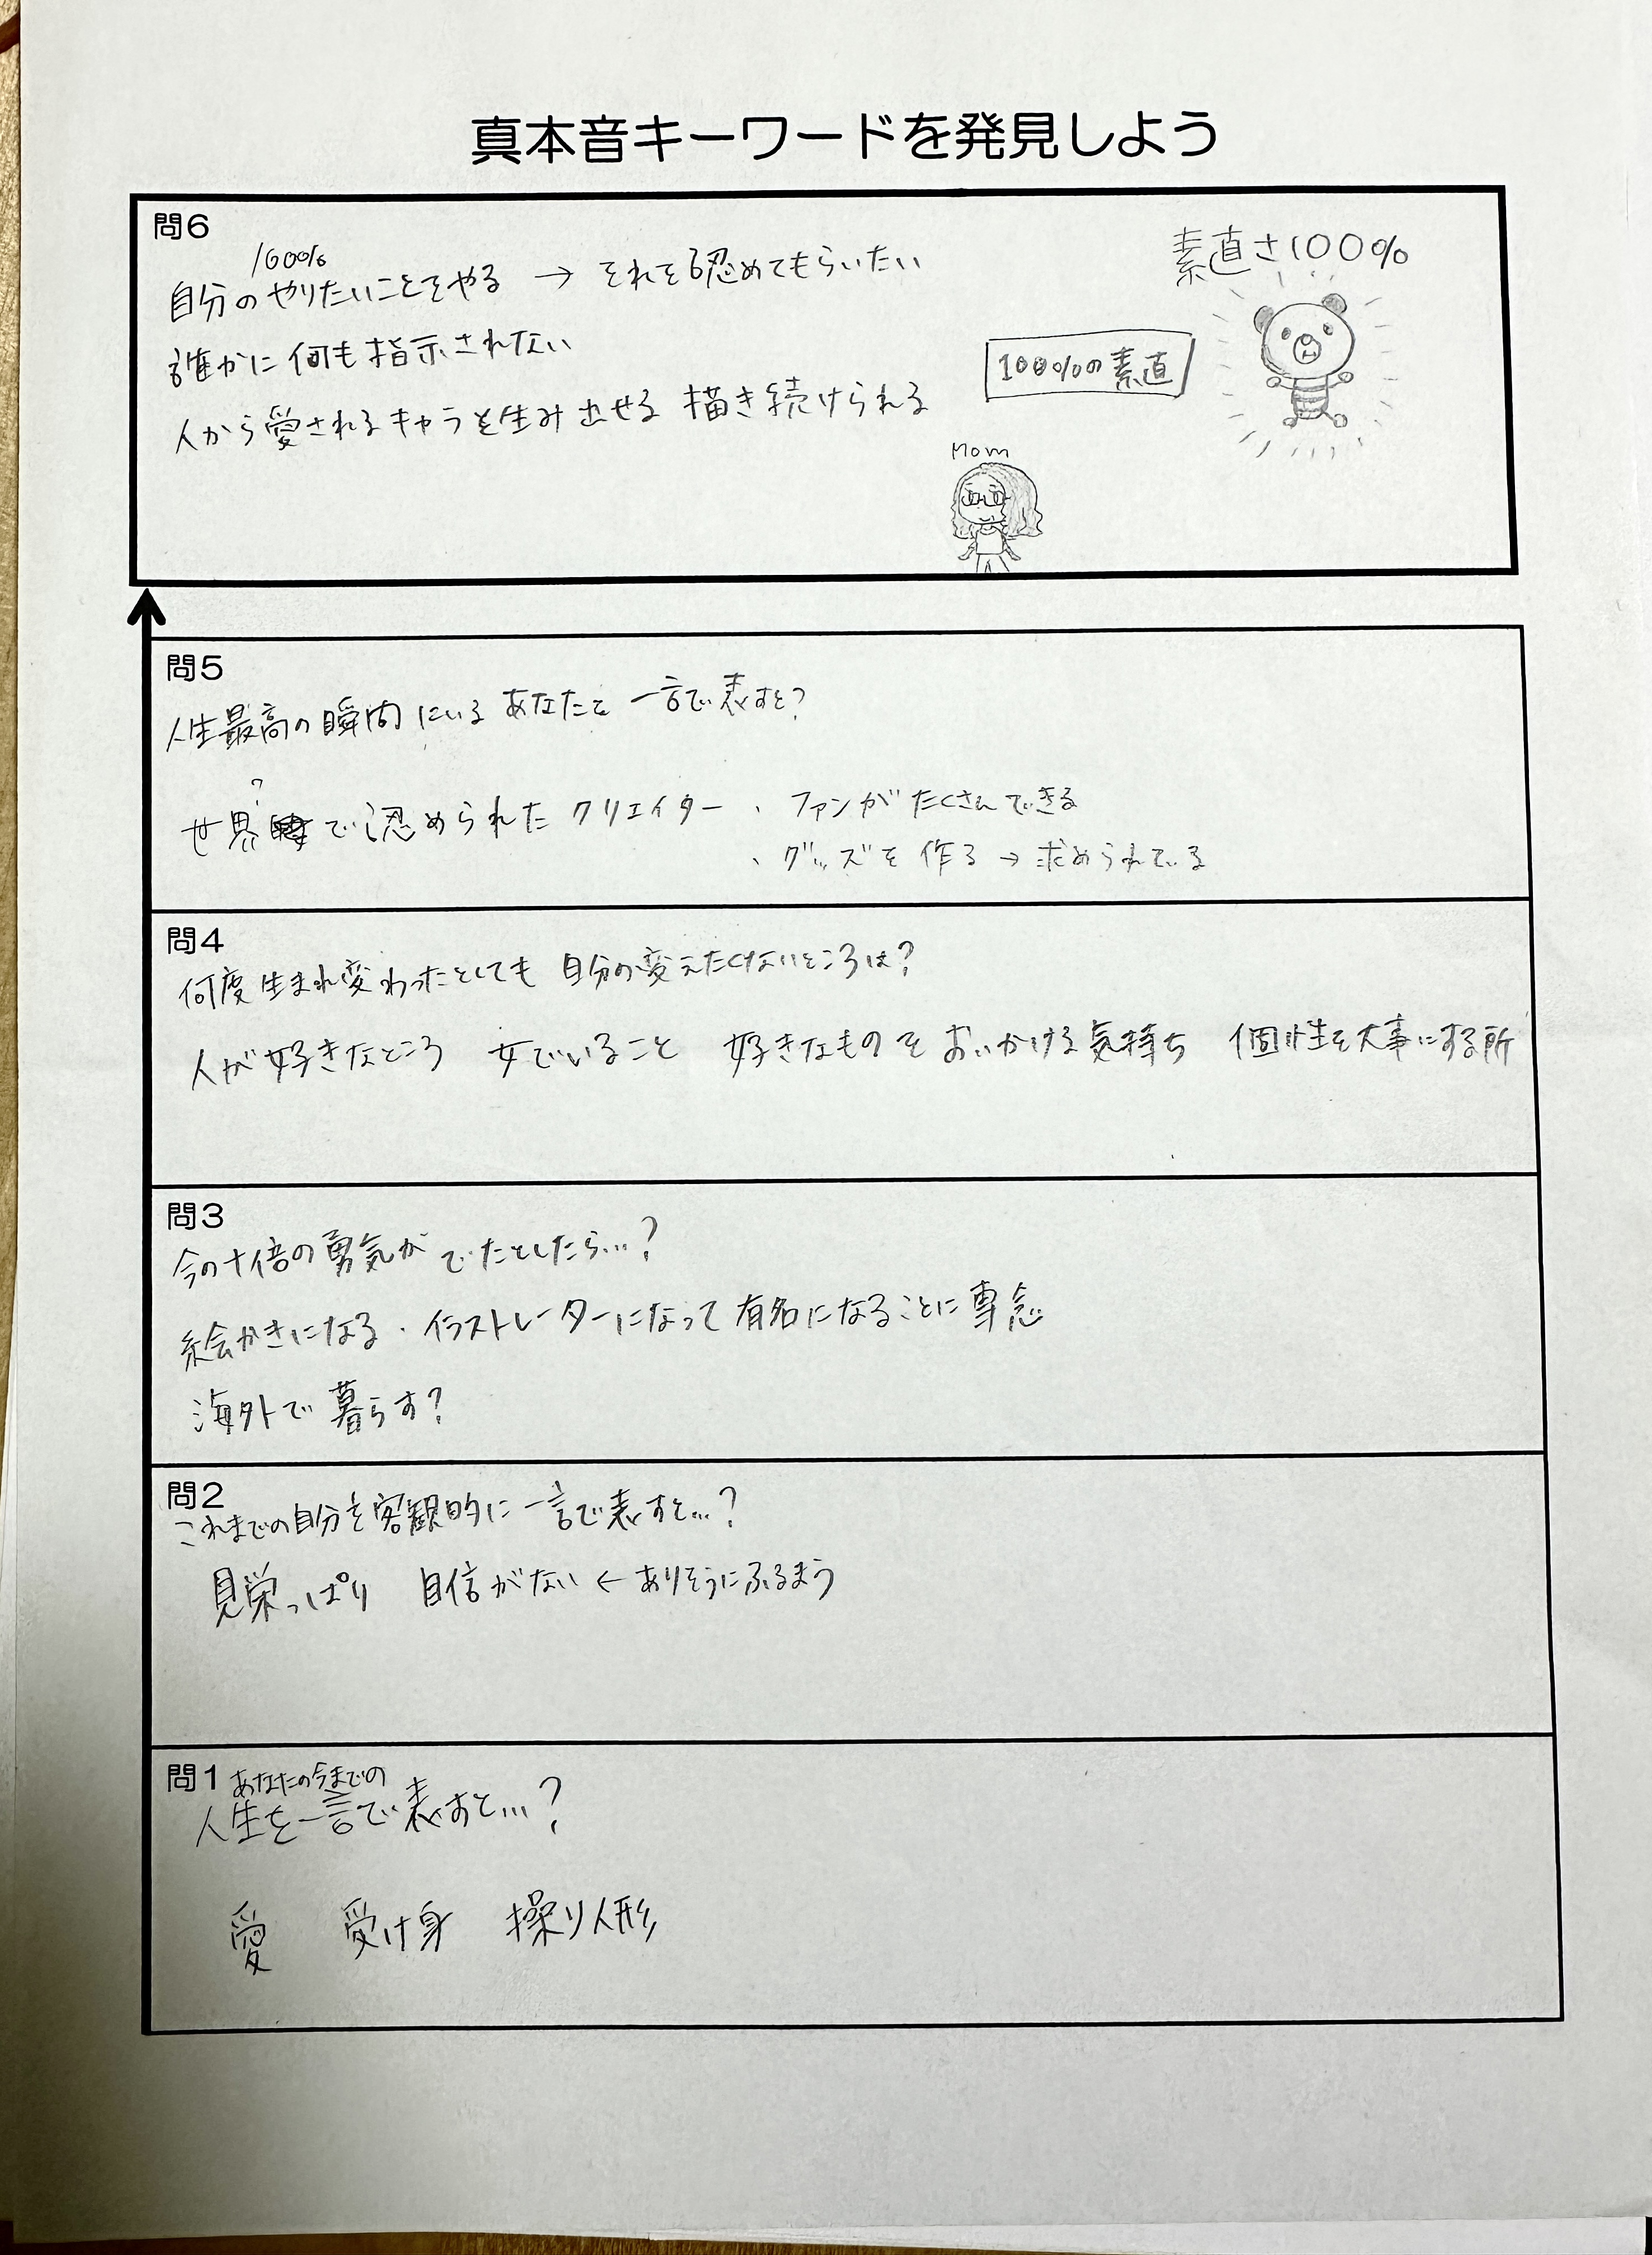 真本音キーワードを発見しよう
問6
100%
自分のやりたいことをやる → それを認めてもらいたい
誰かに何も指示されない
人から愛されるキャラを生み出せる 描き続けられる
素直さ100%
100%の素直
Mom
問5
人生最高の瞬間にいるあなたを一言で表すと?
?
世界で認められたクリエイター 、ファンがたくさんできる
、グッズを作る → 求められている
問4
何度生まれ変わったとしても 自分の変えたくないところは?
人が好きなところ 女でいること 好きなものをおいかける気持ち 個性を大事にする所
問3
今の十倍の勇気がでたとしたら…?
絵かきになる・イラストレーターになって有名になることに専念
海外で暮らす?
問2
これまでの自分を客観的に一言で表すと…?
見栄っぱり 自信がない ← ありそうにふるまう
問1 あなたの今までの
人生を一言で表すと…?
愛 受け身 操り人形